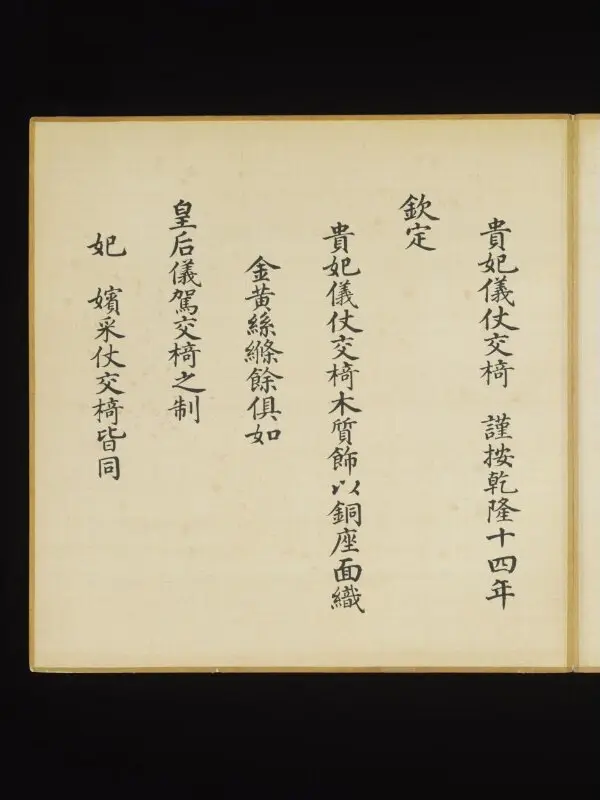 貴妃儀仗交椅　謹按乾隆十四年
欽定
貴妃儀仗交椅木質飾以銅座面織
金黃絲絛餘俱如
皇后儀駕交椅之制
妃　嬪采仗交椅皆同